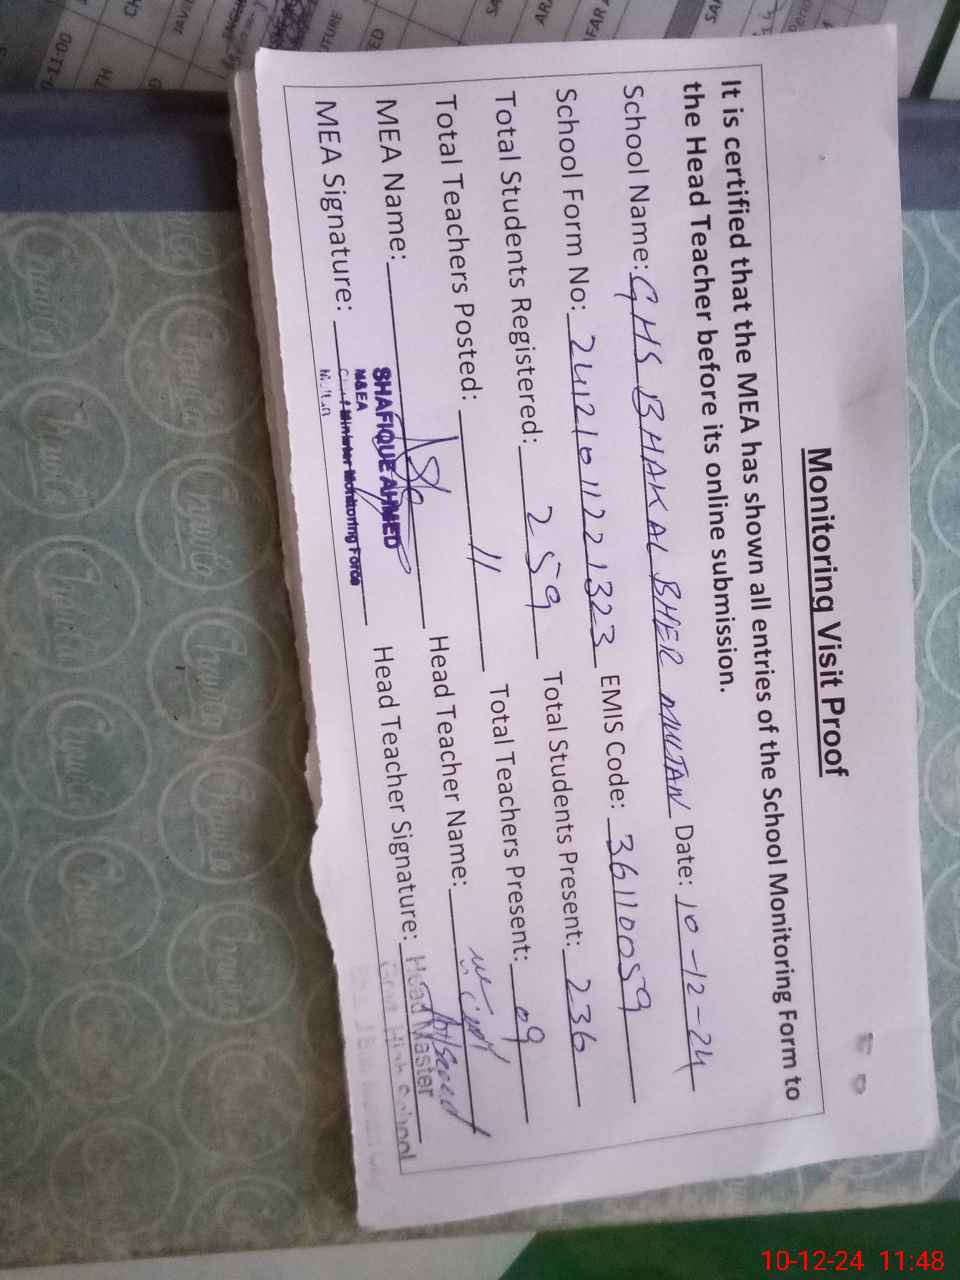 Monitoring Visit Proof
It is certified that the MEA has shown all entries of the School Monitoring Form to
the Head Teacher before its online submission.
School Name: GHS BHAKAL BHER MULTAN Date: 10-12-24
School Form No: 24121011221323 EMIS Code: 36110059
Total Students Registered: 259 Total Students Present: 236
Total Teachers Posted: 11 Total Teachers Present: 09
MEA Name: Head Teacher Name:
SHAFIQUE AHMED
M&EA
Chief Minister Monitoring Force
Multan
MEA Signature: Head Teacher Signature:
Head Master
Govt. High School
10-12-24 11:48